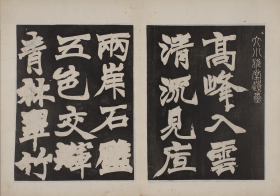 高峰入雲
清流見底
兩岸石壁
五色交輝
青林翠竹